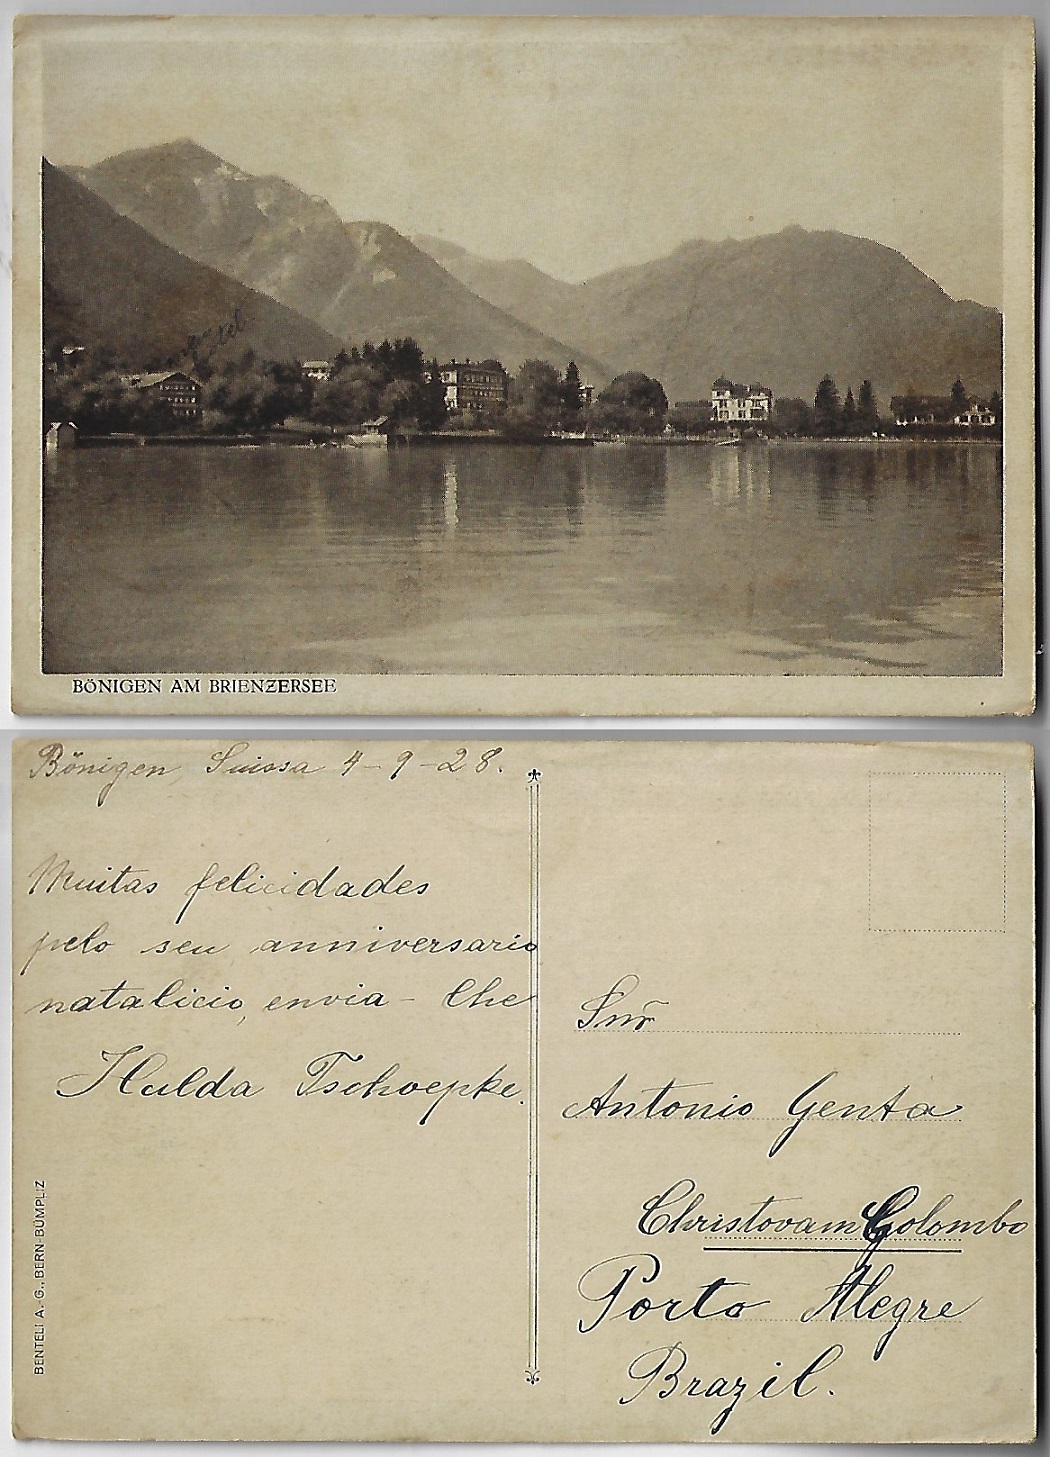 BÖNIGEN AM BRIENZERSEE
Bönigen, Suissa 4-9-28.
Muitas felicidades
pelo seu anniversario
natalicio, envia-lhe
Hulda Tschoepke.
Snr̃
Antonio Genta
Christovam Colombo
Porto Alegre
Brazil.
BENTELI A. G., BERN-BÜMPLIZ